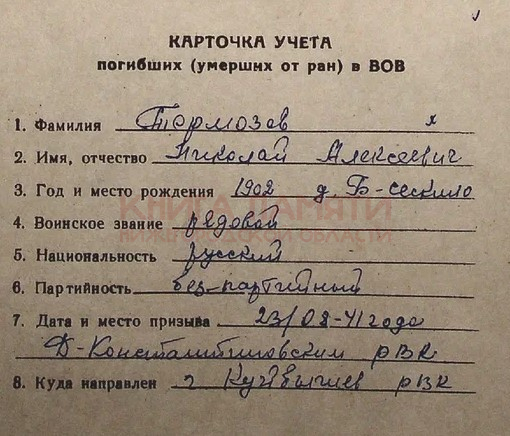 КАРТОЧКА УЧЕТА
погибших (умерших от ран) в ВОВ
1. Фамилия Тормозов х
2. Имя, отчество Николай Алексеевич
3. Год и место рождения 1902 д. Б-Сескино
КНИГА ПАМЯТИ
4. Воинское звание рядовой
НИЖЕГОРОДСКОЙ ОБЛАСТИ
5. Национальность русский
6. Партийность без-партийный
7. Дата и место призыва 23/08-41 года
Д-Константиновским РВК
8. Куда направлен г Куйбышев РВК